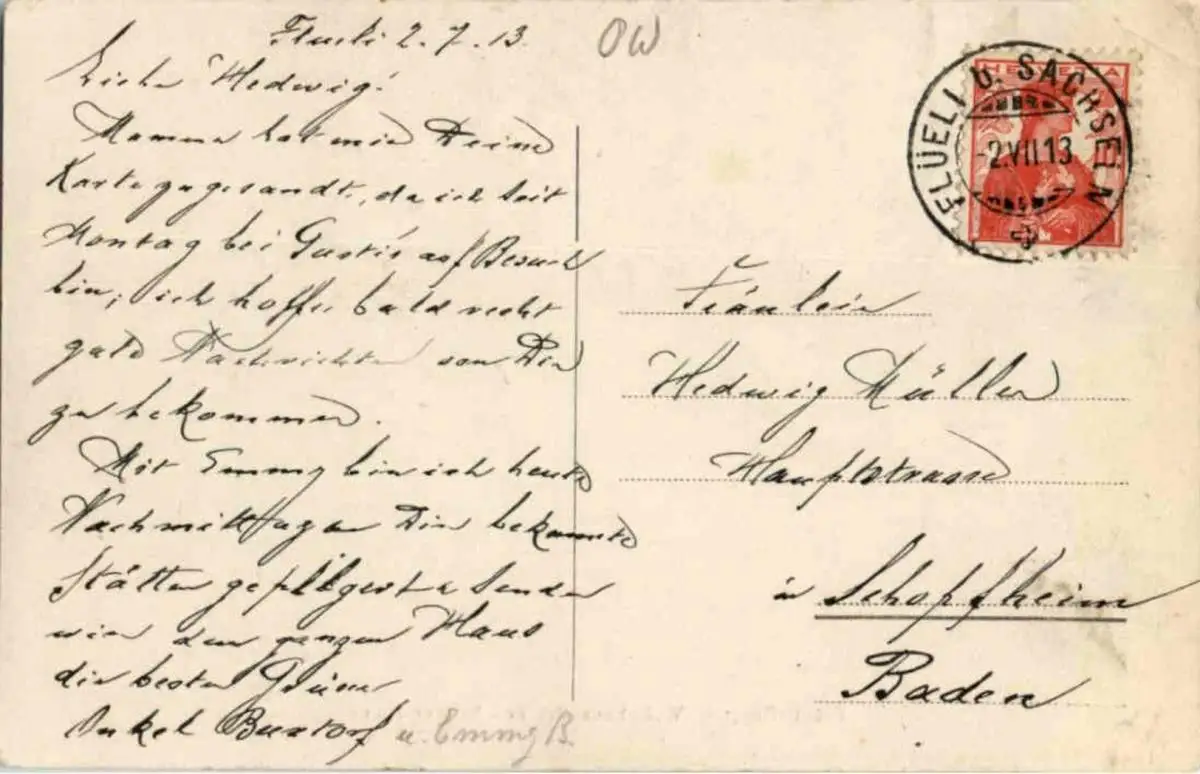 Flueli 2.7.13.
OW
Liebe Hedwig!
Mamma hat mir Deine
Karte zugesandt, da ich seit
Montag bei Gusti's auf Besuch
bin, ich hoffe bald recht
gute Nachrichten von Dir
zu bekommen.
Mit Emmy bin ich heute
Nachmittag an Dir bekannte
Stätten gepilgert & senden
wir dem ganzen Haus
die besten Grüsse
Onkel Buxtorf
u. Emmy B.
HELVETIA
FLÜELI U. SACHSELN
-2.VII.13
Fräulein
Hedwig Müller
Hauptstrasse
in Schopfheim
Baden